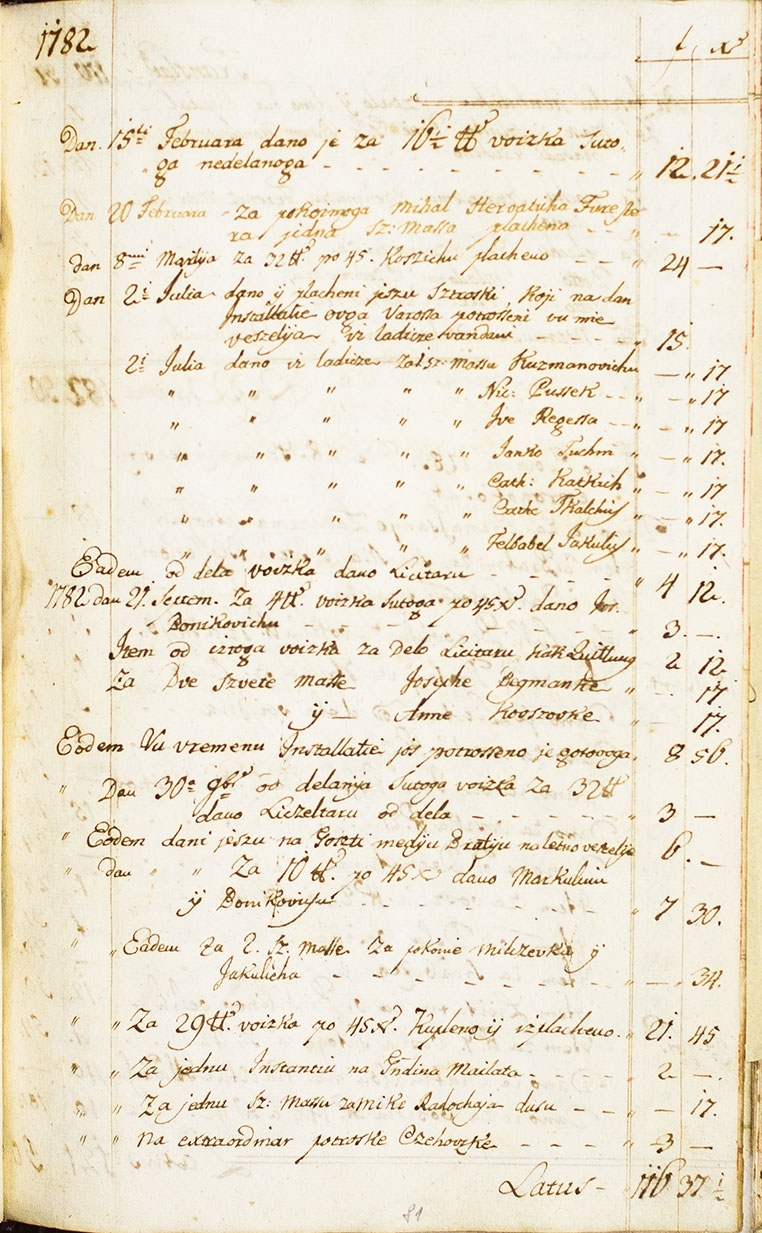 1782
f xr
Dan. 15ti Februara dano je za 16½ ℔ voizka suto-
ga nedelanoga - - - - - - - - - " 12. 21½
Dan 20 Februara - Za pokoinoga Mihal Hervaticha
ra jedna sz: Massa plachena - - " - 17.
dan 8 za 32 ℔ po 45. Koszichu placheno - - " 24 -
Dan 2 Julia dano ij placheni jeszu Sztroski, koji na dan
Installatie ovoga Varossa potrosseni vu
veszelja vi ladicze - - - - - " 15.
2 Julia dano vi ladicze za 1 sz: Massu Kuzmanovichu - " 17
" " " " " Nic: Pussek - - " - " 17
" " " " " Ive Regessa - - " - " 17
" " " " " Janko " - " 17.
" " " " " Cath: Katkich " - " 17
" " " " " " - " 17.
" " " " " Jakulij " - " 17.
Eadem od dela voizka dano Licitaru - - - - - " 4 12.
1782 dan 21. Za 4 ℔. voizka sutoga po 45 xr. dano
Bonikovichu - - - - - - - - - " 3. -.
Item od iztoga voizka za Delo Licitaru kak Quittung 2 12
Za Dve szvete Masse Josephe " - 17
ij - Anne " - 17.
Eodem Vu vremenu Installatie jos potrosseno je gotovoga. 8 56.
" Dan 30a 9bra od delanja sutoga voizka za 32 ℔
dano Liczeltaru od dela - - - - - - " 3 -
" Eodem dani jeszu na Goszti medju Bratju na letno veszelje 6. -
" dan " " Za 10 ℔. po 45 x dano Markuliniu
ij Bonikovichu - - - - - - " 7 30.
" " Eadem za 2. sz. Masse za pokoine ij
Jakulicha - - - - - - - - " - " 34.
" " Za 29 ℔. voizka po 45 xr. Kupleno ij izplacheno. " 21. 45
" " Za jednu Instantiu na Gndina Mailata - - - - " 2 -.
" " Za jednu sz: Massu za Radochaja dusu - - " - 17.
" " na extraordinar potroske Czehovzke - - - - " 3 -
Latus - 116 37½
81